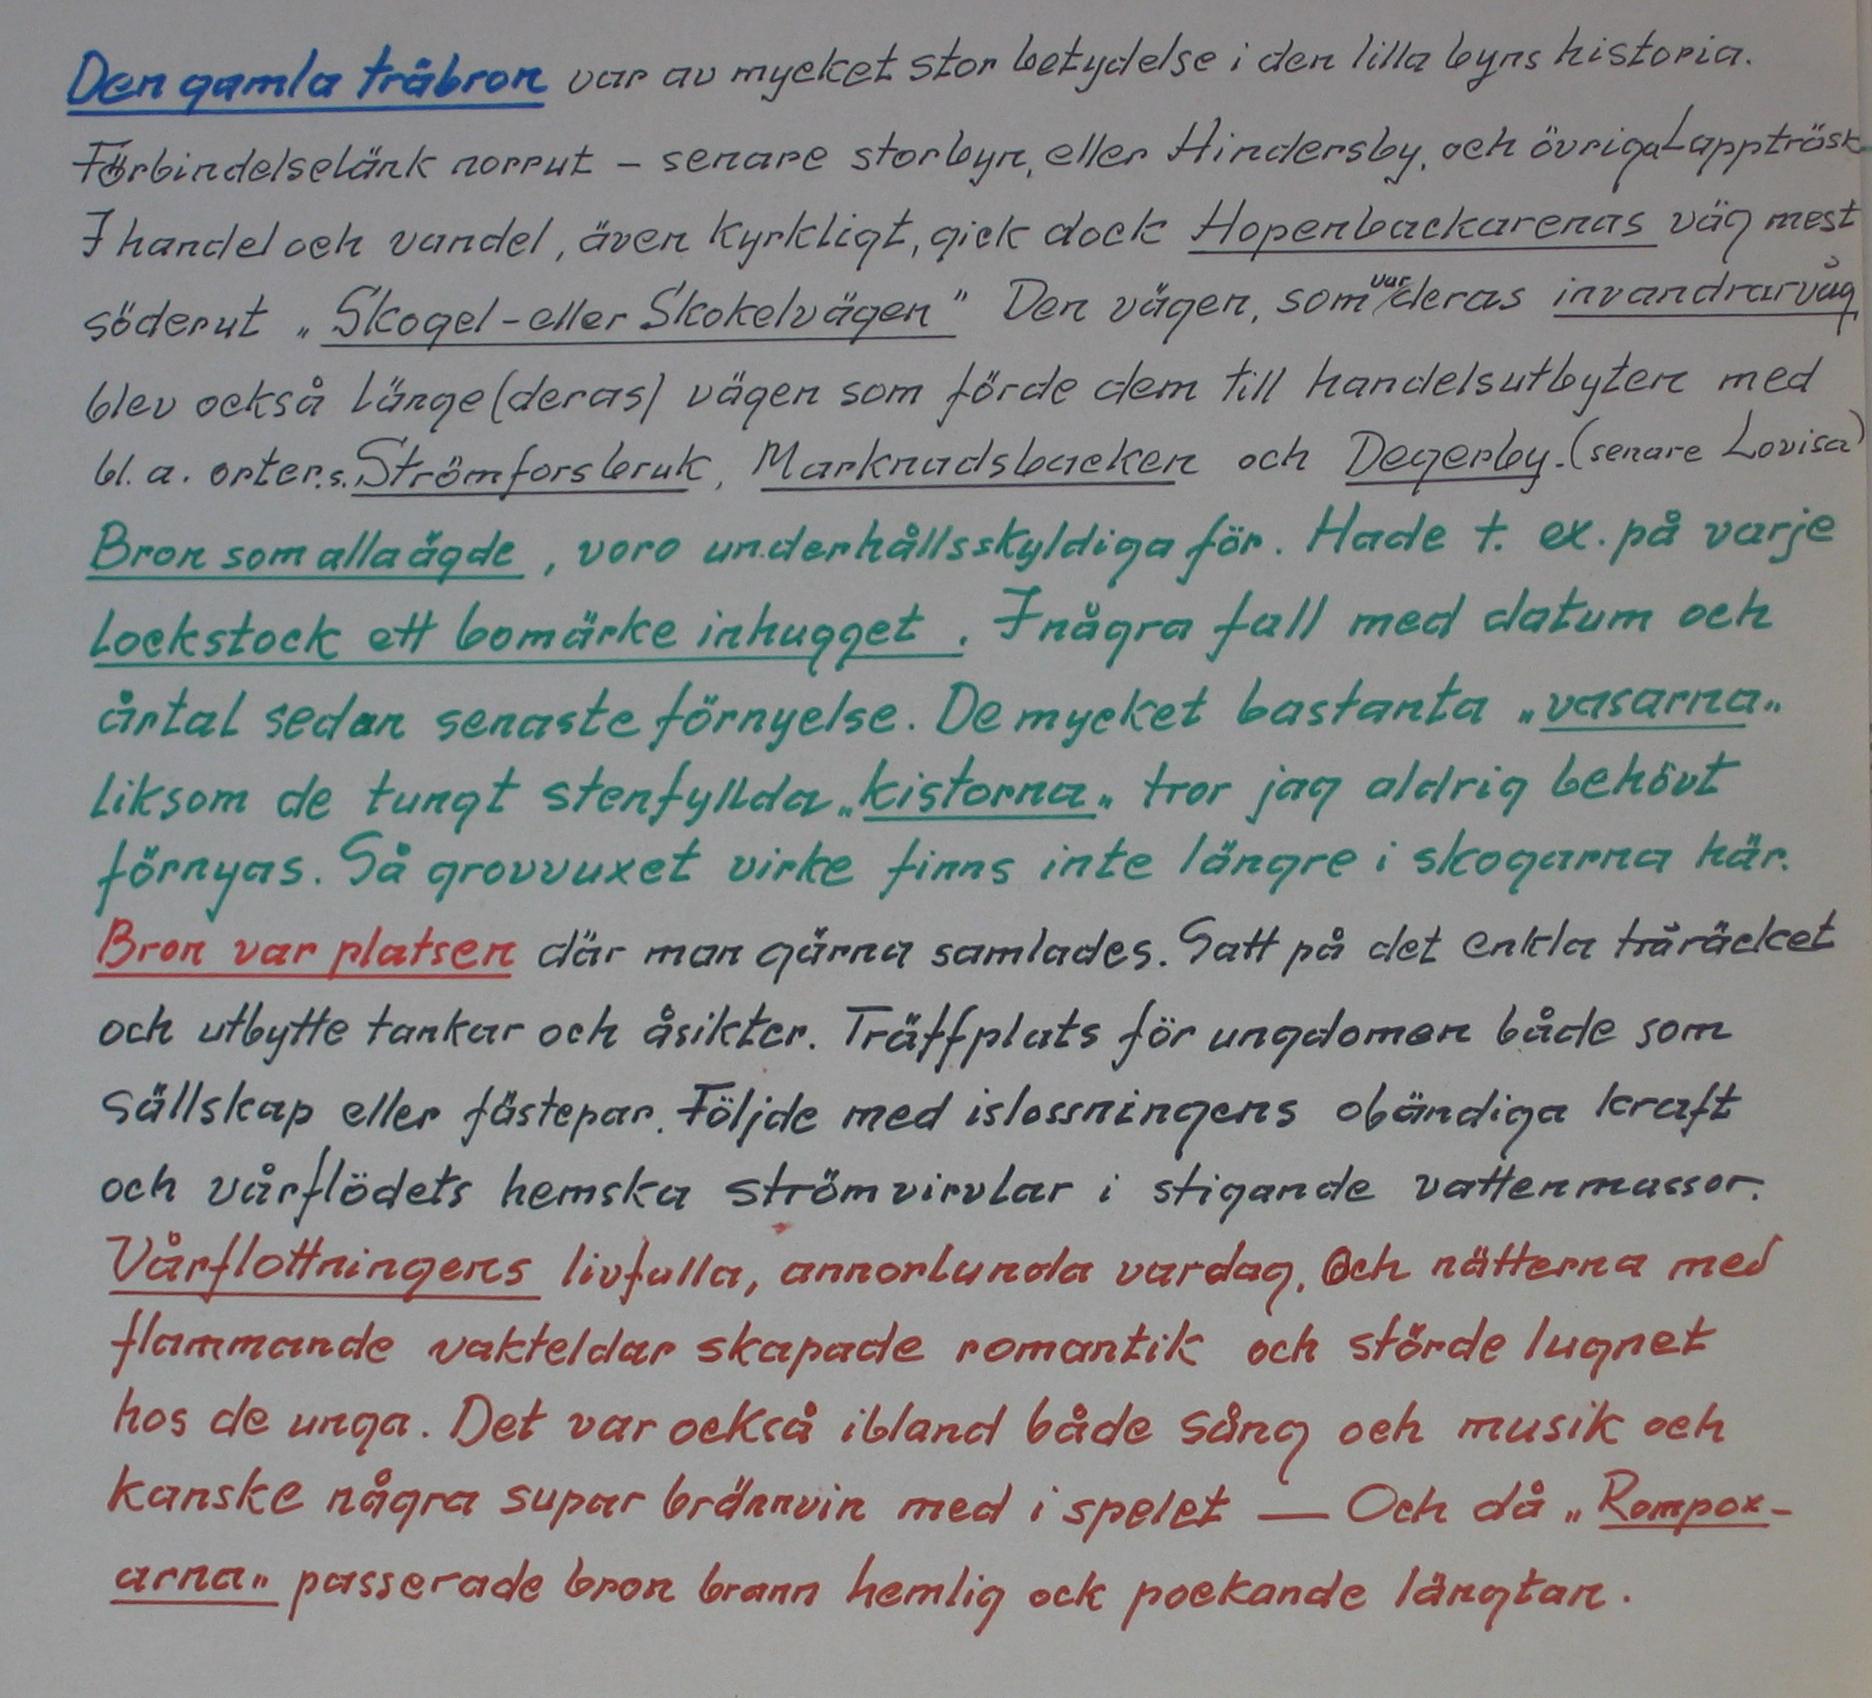 Den gamla träbron var av mycket stor betydelse i den lilla byns historia.
Förbindelselänk norrut – senare storbyn, eller Hindersby, och övriga Lappträsk.
I handel och vandel, även kyrkligt, gick dock Hopenbackarenas väg mest
söderut „Skogel-eller Skokelvägen” Den vägen, som var deras invandrarväg
blev också länge (deras) vägen som förde dem till handelsutbyten med
bl. a. orter s. Strömfors bruk, Marknadsbacken och Degerby. (senare Lovisa)
Bron som alla ägde, voro underhållsskyldiga för. Hade t. ex. på varje
Lockstock ett bomärke inhugget. I några fall med datum och
årtal sedan senaste förnyelse. De mycket bastanta „vasarna„
liksom de tungt stenfyllda „kistorna„ tror jag aldrig behövt
förnyas. Så grovvuxet virke finns inte längre i skogarna här.
Bron var platsen där man gärna samlades. Satt på det enkla träräcket
och utbytte tankar och åsikter. Träffplats för ungdomen både som
sällskap eller fästepar. Följde med islossningens obändiga kraft
och vårflödets hemska strömvirvlar i stigande vattenmassor.
Vårflottningens livfulla, annorlunda vardag. Och nätterna med
flammande vakteldar skapade romantik och störde lugnet
hos de unga. Det var också ibland både sång och musik och
kanske några supar brännvin med i spelet — Och då „Rompox-
arna„ passerade bron brann hemlig ock pockande längtan.